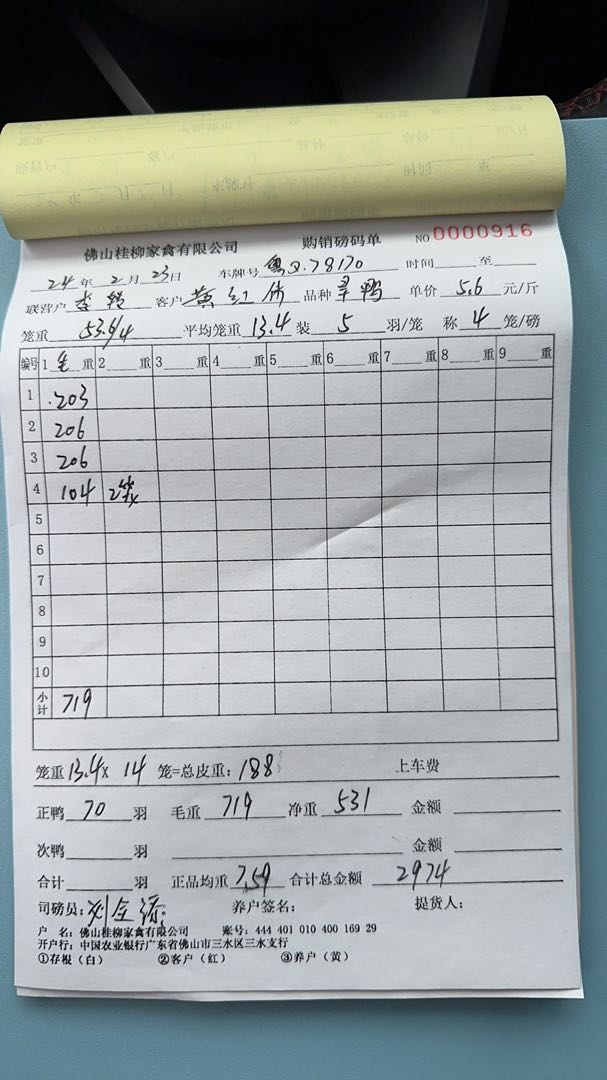 佛山桂柳家禽有限公司 购销磅码单 NO 0000916
24年2月23日 车牌号 粤Q.78170 时间 至
联营户 李 客户 黄红伟 品种 旱鸭 单价 5.6 元/斤
笼重 53.6/4 平均笼重 13.4 装 5 羽/笼 称 4 笼/磅
编号 1 毛 重 2 重 3 重 4 重 5 重 6 重 7 重 8 重 9 重
1 203
2 206
3 206
4 104 2笼
5
6
7
8
9
10
小计 719
笼重 13.4 x 14 笼=总皮重: 188 上车费
正鸭 70 羽 毛重 719 净重 531 金额
次鸭 羽 金额
合计 羽 正品均重 7.59 合计总金额 2974
司磅员: 刘金 养户签名: 提货人:
户 名: 佛山桂柳家禽有限公司 账号: 444 401 010 400 169 29
开户行: 中国农业银行广东省佛山市三水区三水支行
①存根（白） ②客户（红） ③养户（黄）